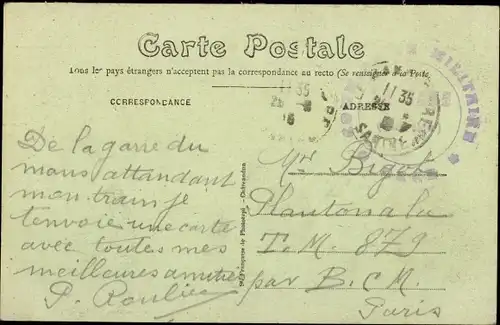 Carte Postale
Tous les pays étrangers n'acceptent pas la correspondance au recto (Se renseigner à la Poste)
CORRESPONDANCE
ADRESSE
MILITAIRE
11 35
11 35
SARTHE
De la gare du
mans attandant
mon train je
t'envoie une carte
avec toutes mes
meilleures amitiés
P. Roulier
Mr Bigot
Plantonala
T. M. 879
par B. C. M.
Paris